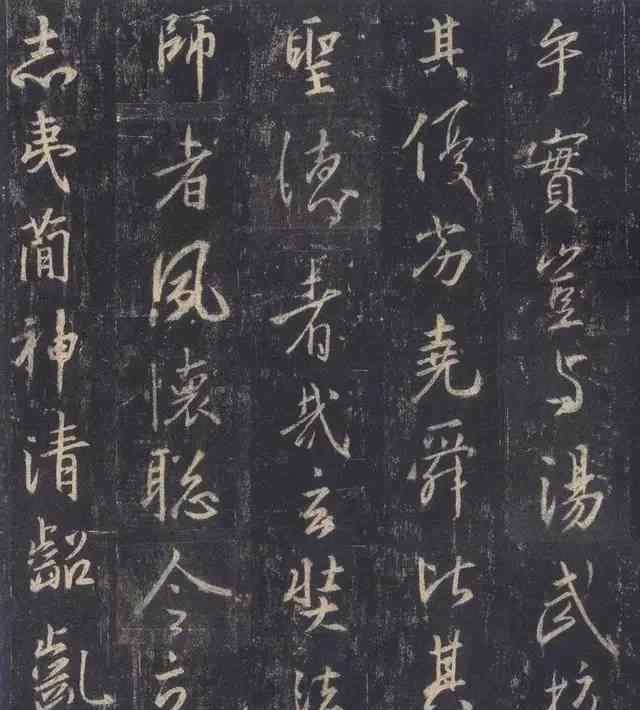 乎實豈与湯武挍
其優劣堯舜比其
聖德者哉玄奘法
師者夙懷聰令立
志夷簡神清齠齔